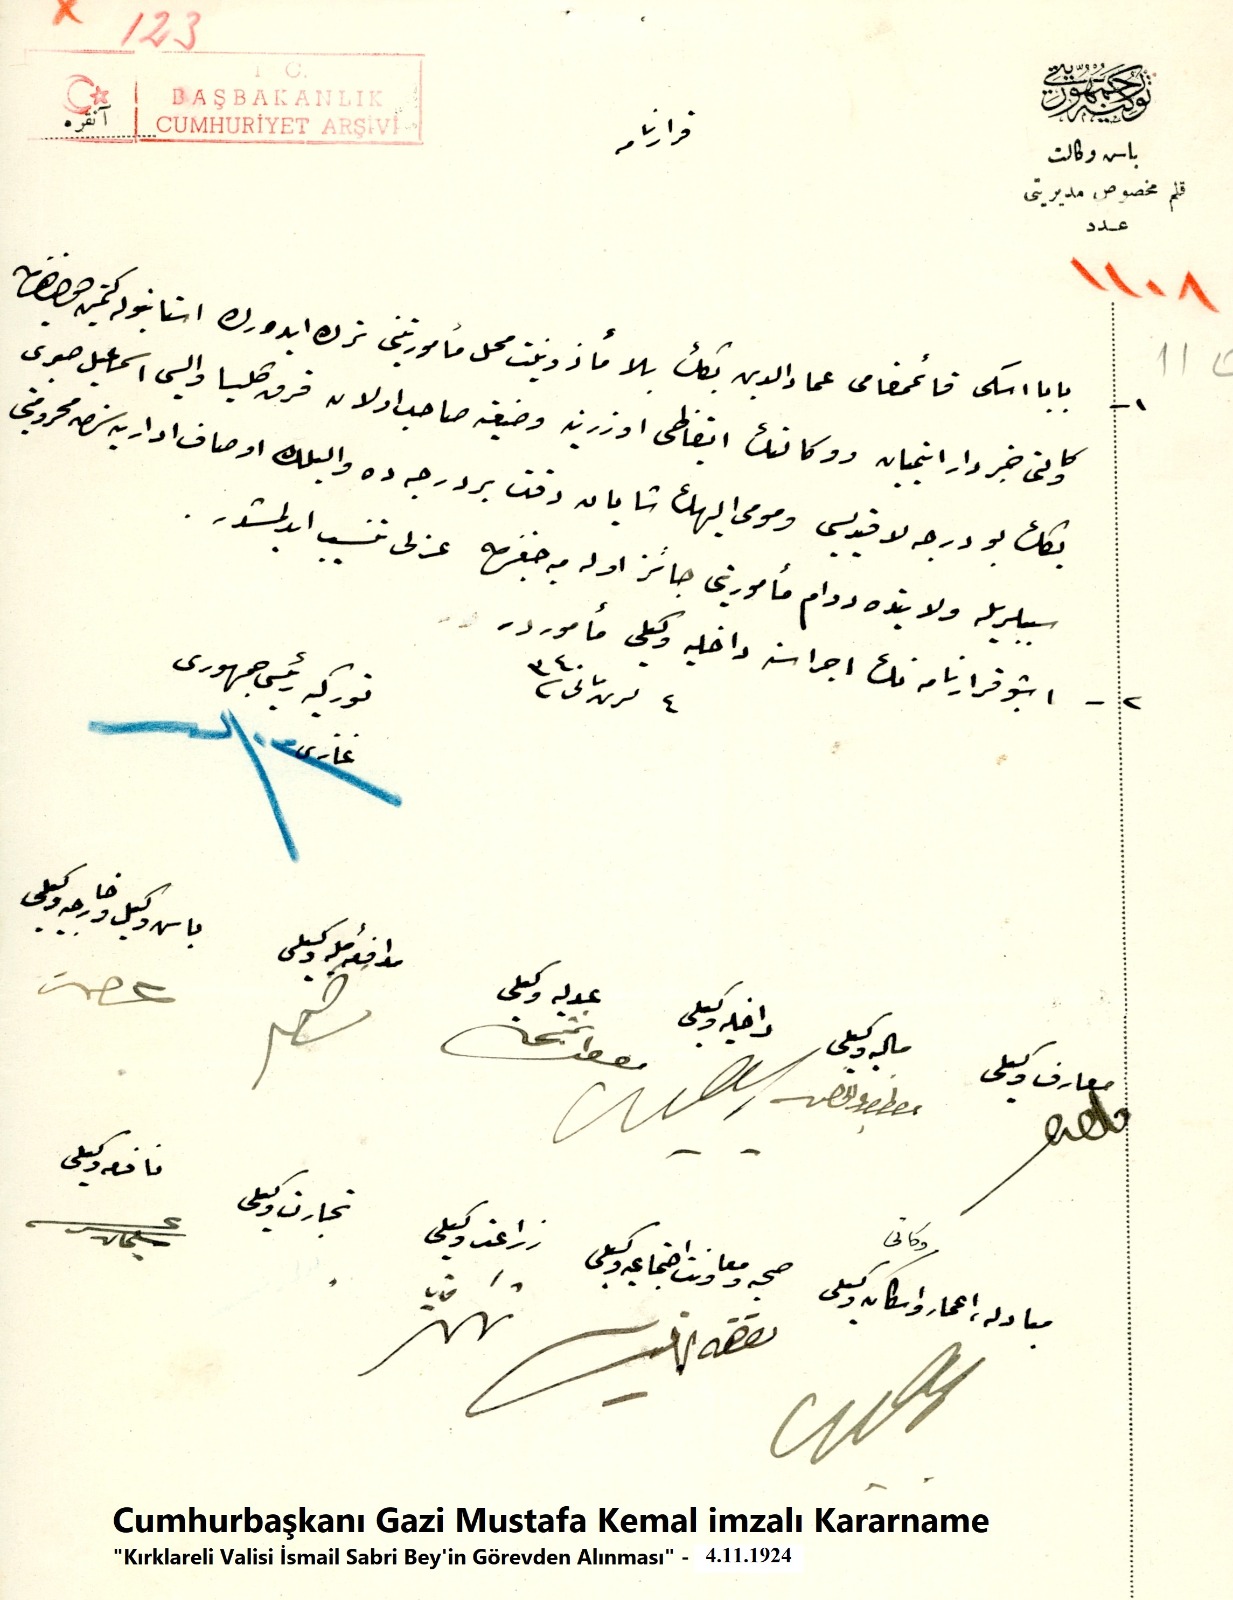 123
T. C.
BAŞBAKANLIK
CUMHURİYET ARŞİVİ
آنقره
توركيه جمهوريتى
باش وكالت
قلم مخصوص مديريتى
عدد
١١٠٨
قرارنامه
١- بابا اسكى قائممقامى عماد الدين بكك بلا مأذونيت محل مأموريتنى ترك ايدورك استانبوله كيتمسندن
وكالتى خبردار ايتميان ووكالتك ايقاظى اوزرينه وضعيته صاحب اولان قرق كليسا واليسى اسماعيل صبرى
بكك بو درجه لاقيديسى ومومى اليهك شايان دقت بر درجه ده واليلك اوصاف اداريه سندن محروميتى
سببلريله ولايتده دوام مأموريتى جائز اوله ميه جغندن عزلى تنسيب ايدلمشدر .
٢- اشبو قرارنامه نك اجراسنه داخليه وكيلى مأموردر
٤ تشرين ثانى ٣٤٠
توركيه رئيس جمهورى
غازى
باش وكيل وخارجيه وكيلى
عصمت
مدافعه مليه وكيلى
كاظم
عدليه وكيلى
داخليه وكيلى
ماليه وكيلى
معارف وكيلى
نافعه وكيلى
تجارت وكيلى
زراعت وكيلى
صحيه ومعاونت اجتماعيه وكيلى
مبادله، اعمار واسكان وكيلى
وكالتى
Cumhurbaşkanı Gazi Mustafa Kemal imzalı Kararname
"Kırklareli Valisi İsmail Sabri Bey'in Görevden Alınması" - 4.11.1924